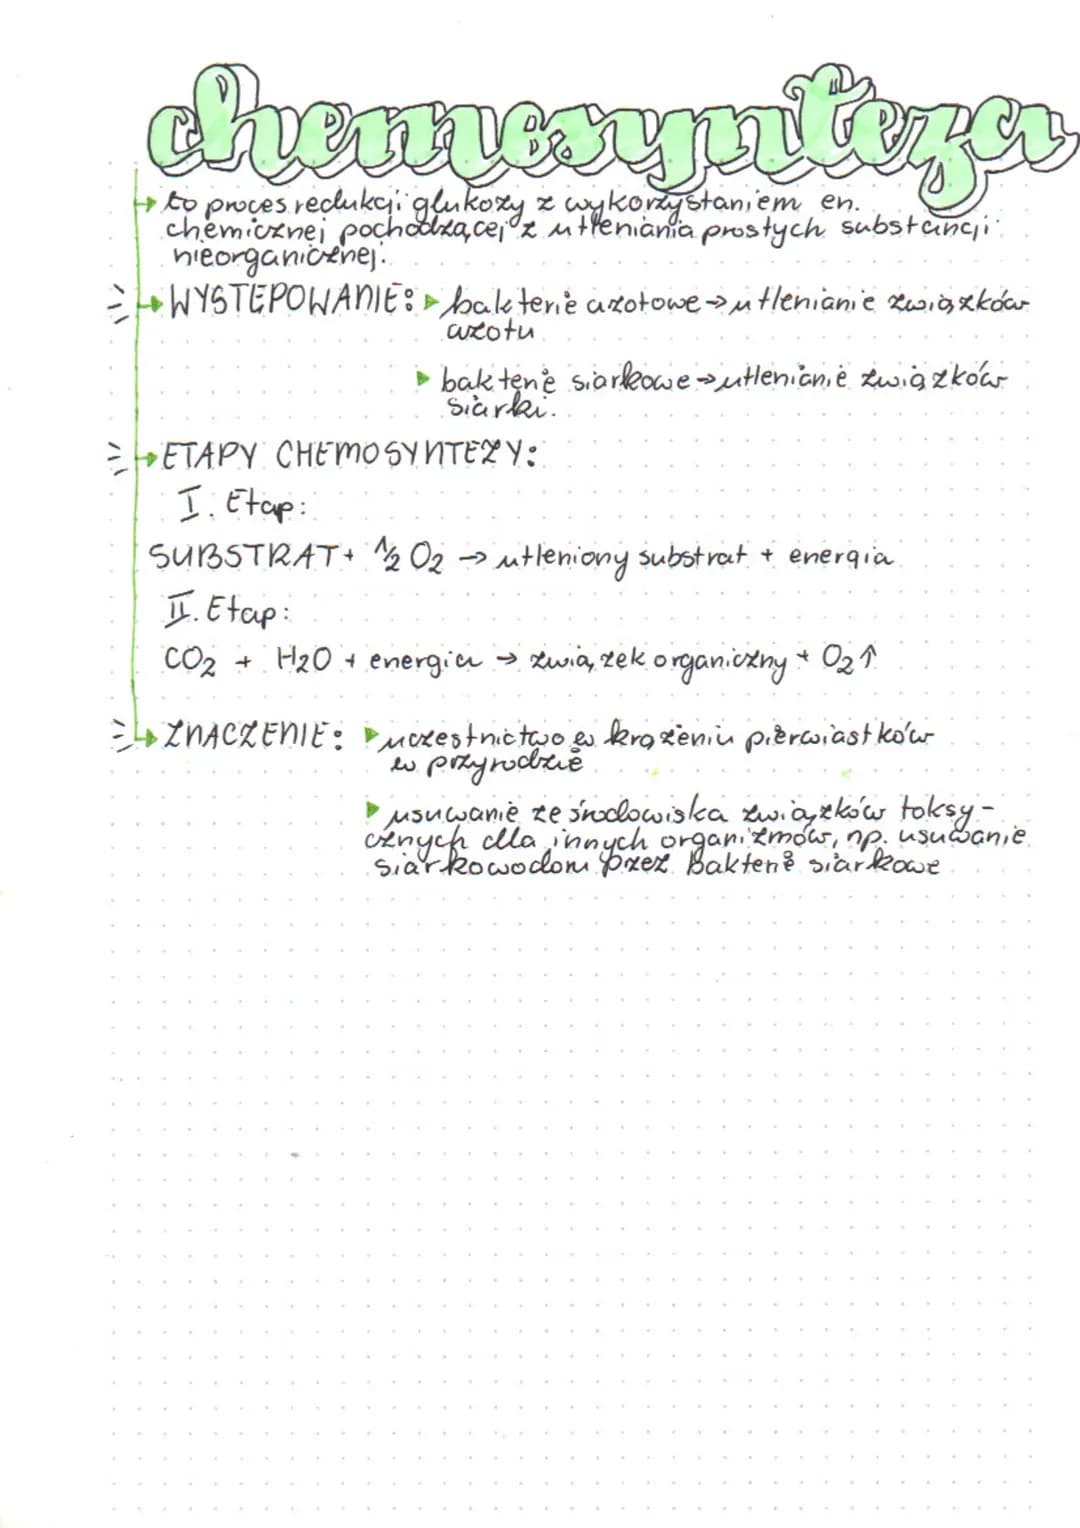 chemosynteza
to proces redukcji glukozy z wykorzystaniem en.
chemicznej pochodzącej z utleniania prostych substancji
nieorganicznej.
WYSTEPOWANIE: bakterie azotowe → utlenianie związków
azotu
bakterie siarkowe → utlenianie związków
siarki.
ETAPY CHEMOSYNTEZY:
I. Etap:
SUBSTRAT + 1/2 O2 → utleniony substrat + energia
II. Etap:
CO2 + H2O + energia → związek organiczny + O2↑
ZNACZENIE: uczestnictwo w krążeniu pierwiastków
w przyrodzie
usuwanie ze środowiska związków toksy-
cznych dla innych organizmów, np. usuwanie
siarkowodoru przez Bakterie siarkowe